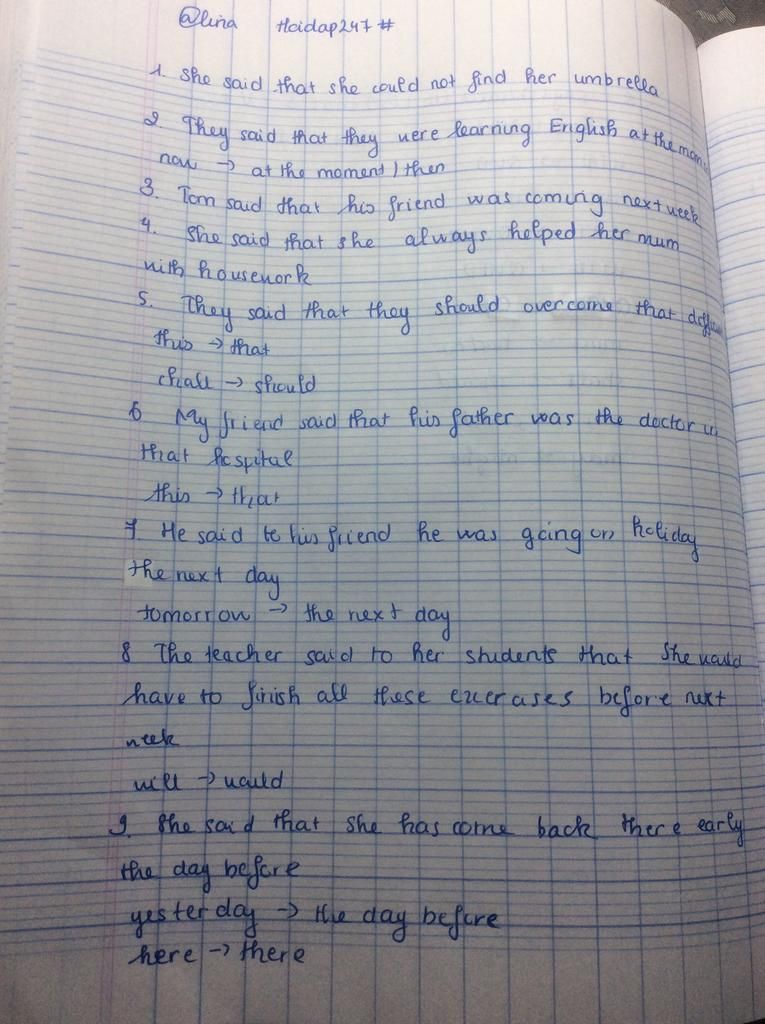 @lina Hoidap247 #
1. She said that she could not find her umbrella
2. They said that they were learning English at the mom
now → at the moment / then
3. Tom said that his friend was coming next week
4. She said that she always helped her mum
with housework
5. They said that they should overcome that
this → that
shall → should
6 My friend said that his father was the doctor in
that hospital
this → that
7 He said to his friend he was going on holiday
the next day
tomorrow → the next day
8 The teacher said to her students that she would
have to finish all these exercases before next
week
will → would
9. She said that she has come back there early
the day before
yesterday → the day before
here → there